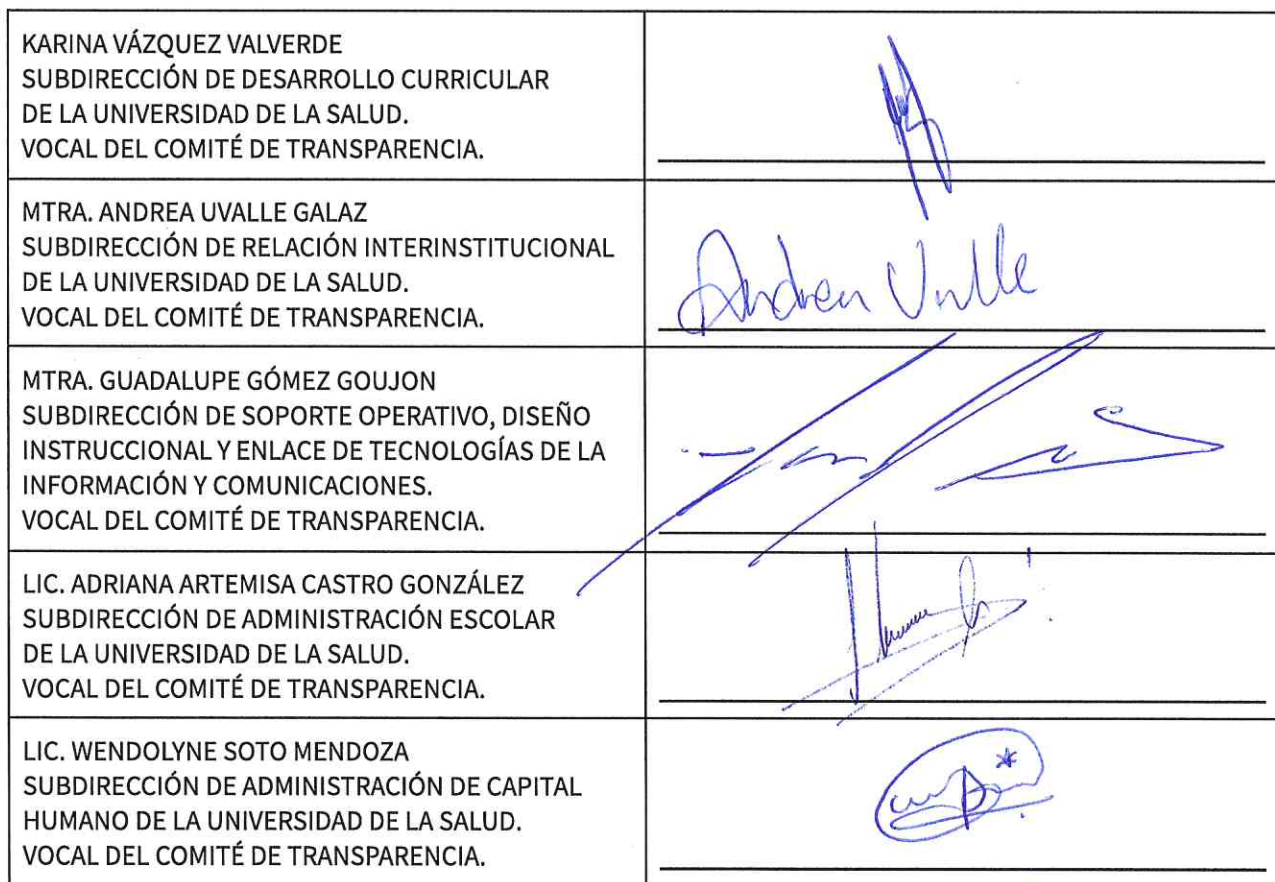 KARINA VÁZQUEZ VALVERDE
SUBDIRECCIÓN DE DESARROLLO CURRICULAR
DE LA UNIVERSIDAD DE LA SALUD.
VOCAL DEL COMITÉ DE TRANSPARENCIA.
MTRA. ANDREA UVALLE GALAZ
SUBDIRECCIÓN DE RELACIÓN INTERINSTITUCIONAL
DE LA UNIVERSIDAD DE LA SALUD.
VOCAL DEL COMITÉ DE TRANSPARENCIA.
Andrea Uvalle
MTRA. GUADALUPE GÓMEZ GOUJON
SUBDIRECCIÓN DE SOPORTE OPERATIVO, DISEÑO
INSTRUCCIONAL Y ENLACE DE TECNOLOGÍAS DE LA
INFORMACIÓN Y COMUNICACIONES.
VOCAL DEL COMITÉ DE TRANSPARENCIA.
LIC. ADRIANA ARTEMISA CASTRO GONZÁLEZ
SUBDIRECCIÓN DE ADMINISTRACIÓN ESCOLAR
DE LA UNIVERSIDAD DE LA SALUD.
VOCAL DEL COMITÉ DE TRANSPARENCIA.
LIC. WENDOLYNE SOTO MENDOZA
SUBDIRECCIÓN DE ADMINISTRACIÓN DE CAPITAL
HUMANO DE LA UNIVERSIDAD DE LA SALUD.
VOCAL DEL COMITÉ DE TRANSPARENCIA.